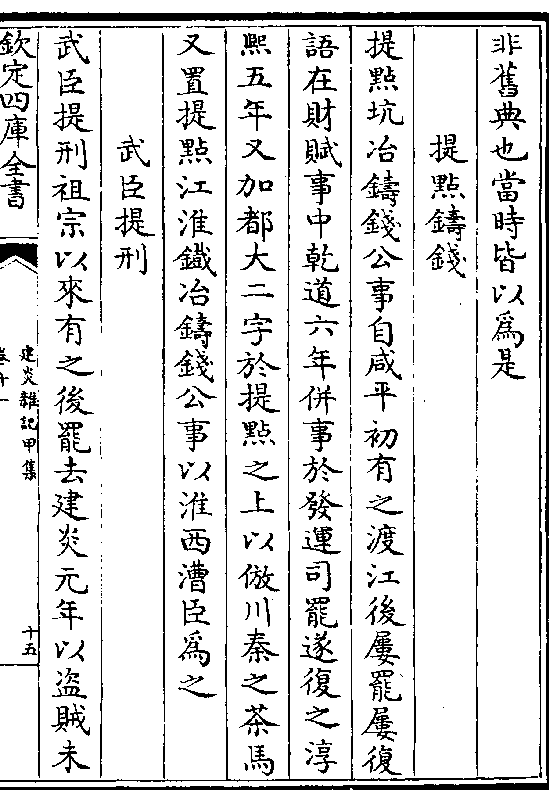 非舊典也當時皆以爲是
提點鑄錢
提點坑冶鑄錢公事自咸平初有之渡江後屢罷屢復
語在財賦事中乾道六年併事於發運司罷遂復之淳
熙五年又加都大二字於提點之上以倣川秦之茶馬
又置提點江淮鐵冶鑄錢公事以淮西漕臣爲之
武臣提刑
武臣提刑祖宗以來有之後罷去建炎元年以盜賊未
欽定四庫全書
建炎雜記甲集
十五